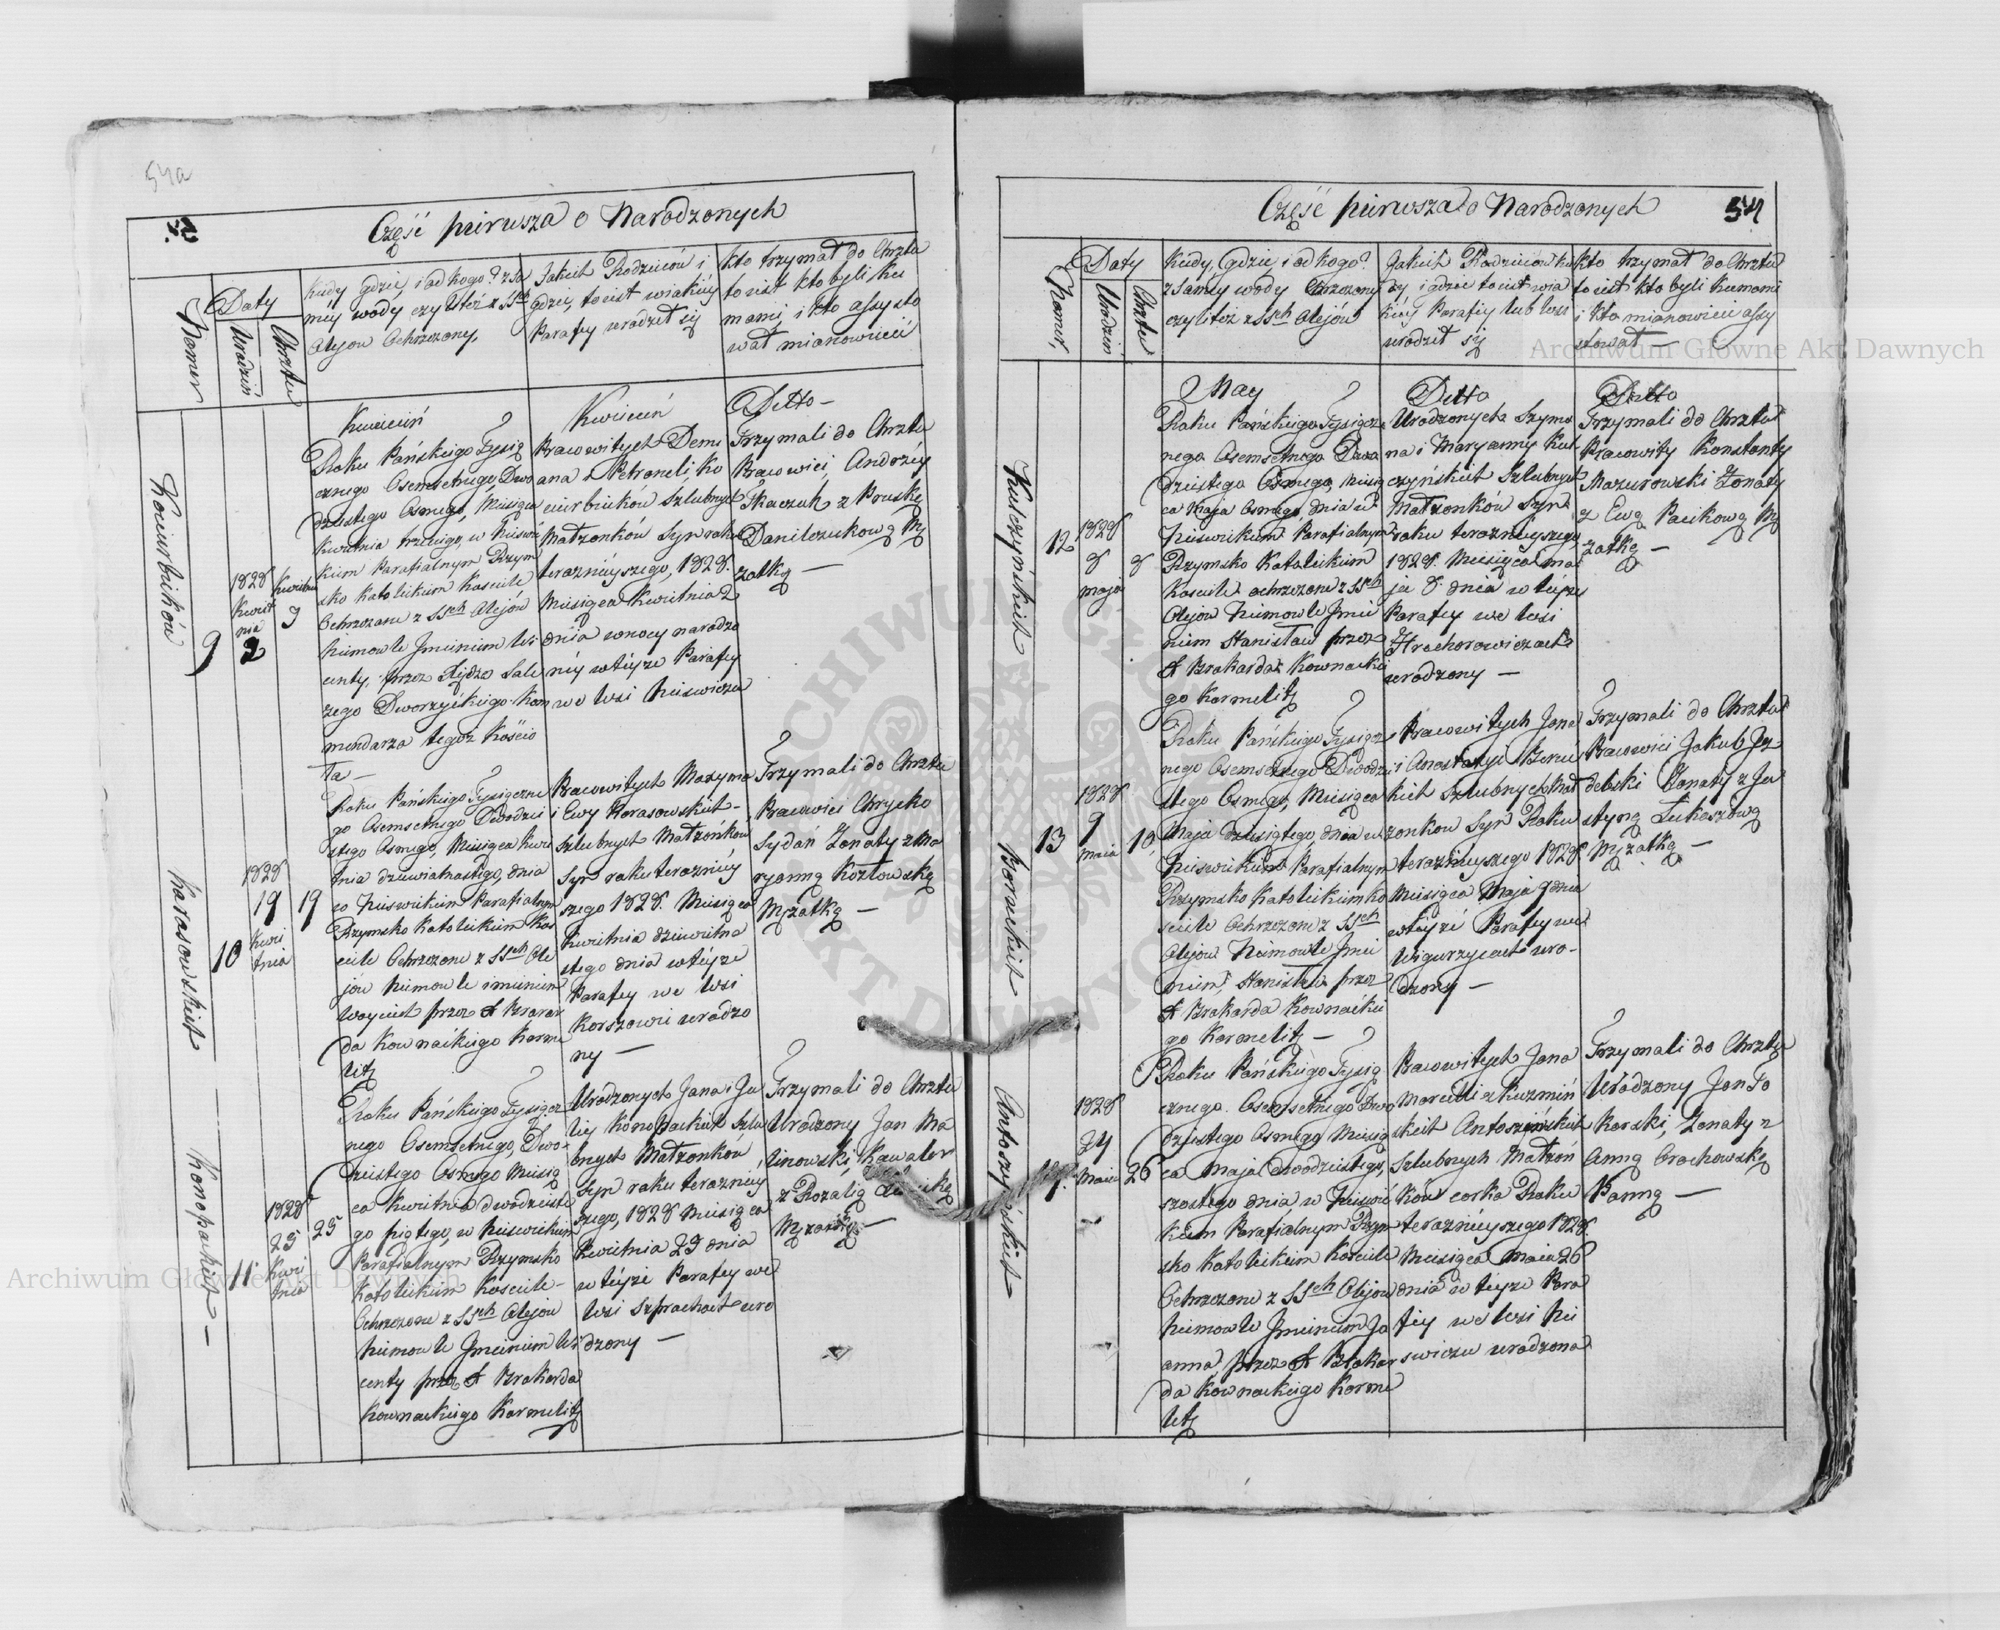 54a
Część pierwsza o Narodzonych
Numer
Daty
Urodzin
Chrztu
Kiedy gdzie, i od kogo? z Sa
méy wody czy też z SSch
Olejow Ochrzczony,
Jakich Rodziców i
gdzie, to iest wiakiéy
Parafij urodził się
kto trzymał do Chrztu
to iest kto byli ku
mami, i kto assysto
wał mianowicié
Kwiecień
Kwiecień
Ditto —
Kociurbików
9
1828
Kwiet
nia
2
Kwietnia
3
Roku Pańskiego Tysią
cznego Osemsetnego, Dwo
dziestego Osmego, Miesiąca
Kwietnia trzeciego, w Nieświ
kim Parafialnym Rzym
sko Katolickim Kosciele
Ochrzczone z SSch Olejów
Niemowle Jmieniem Wi
centy, przez Xiędza Sale
zego Dworzyckiego Kom
mendarza tegoz Koscio
ła —
Pracowitych Demi
ana i Petroneli, Ko
ciurbików Szlubnych
Małzonków Syn roku
terazniéyszego, 1828.
Miesiąca Kwietnia 2
dnia wnocy narodzo
néy wtéyze Parafij
we Wsi Nieswiczu
Trzymali do Chrztu
Pracowici, Andrzéy
Tkaczuk z Pruską
Danilczukową Mę
zatką —
Karasowskich
10
1828
19
Kwi
etnia
19
Roku Pańskiego Tysiączne
go Osemsetnego Dwódzie
stego Osmego, Miesiąca Kwi
tnia dziewiatnastego, dnia
w Nieswickim Parafialnym
Rzymsko Katolickim Kos
ciele Ochrzczone z SSch Ole
jów Niemowle imieniem
Woyciech przez X Brokar
da Kownackiego Karme
litę
Pracowitych Maxyma
i Ewy Karasowskich
Szlubnych Małzonków
Syn roku terazniéy
szego 1828. Miesiąca
Kwietnia dziewietna
stego dnia wtéyze
Parafij we Wsi
Korszowie urodzo
ny —
Trzymali do Chrztu
Pracowici Chryćko
Sydań Zonaty z Ma
ryanną Kozłowską
Męzatką —
Konopackich —
11
1828
25
Kwie
tnia
25
Roku Pańskiego Tysiącz
nego Osemsetnego, Dwo
dziestego Osmego Miesią
ca Kwietnia dwódzieste
go piątego, w Nieswickim
Parafialnym Rzymsko
Katolickim Kosciele
Ochrzczone z SSch Olejow
Niemowle Jmieniem Wi
centy przez X Brokarda
Kownackiego Karmelitę
Urodzonych Jana i Ju
lij Konopackich Szlu
bnych Małzonków
Syn roku terazniéy
szego, 1828 Miesiąca
Kwietnia 23 dnia
wtéyze Parafij we
Wsi Szprachach uro
dzony —
Trzymali do Chrztu
Urodzony Jan Ma
linowski, Kawaler
z Rozalią
Męzatką —
Część pierwsza o Narodzonych
54
Numer,
Daty
Urodzin
Chrztu
Kiedy, gdzie, i od kogo?
z Saméy wody Ochrzczony
czyli tez z SSch Olejów
Jakich Rodziców
i gdzie to iest wia
kiéy Parafij lub Wsi
urodził się
kto trzymał do Chrztu
to iest kto byli kumami
i kto mianowicie assy
stował —
May
Ditto
Ditto
Kulczyńskich
12
1828
8
maja
8
Roku Pańskiego Tysiącz
nego Osemsetnego Dwa
dziestego Osmego, Miesią
ca Maja Osmego, dnia w
Nieswickim Parafialnym
Rzymsko Katolickim
Kosciele ochrzczone z SSch
Olejow Niemowle Jmie
niem Stanisław przez
X Brokarda Kownackie
go Karmelitę
Urodzonych Szymo
na i Maryanny Kul
czyńskich Szlubnych
Małzonków Syn
roku terazniéyszego,
1828. Miesiąca ma
ja 8 dnia w téyze
Parafij we Wsi
Hrechorowiczach
urodzony —
Trzymali do Chrztu
Pracowity Konstanty
Mazurowski Zonaty
z Ewą Pacikową Mę
zatką —
Borackich
13
1828
9
maia
10
Roku Pańskiego Tysiącz
nego Osemsetnego Dwodzie
stego Osmego, Miesiąca
Maja dziesiątego, dnia w
Nieswickim Parafialnym
Rzymsko Katolickim Ko
sciele Ochrzczone z SSch
Olejow Niemowle Jmie
niem, Stanisław przez
X Brokarda Kownackie
go Karmelitę —
Pracowitych Jana
i Anastazyi
Szlubnych Mał
zonkow Syn Roku
terazniéyszego 1828
Miesiąca Maja 9 dnia
wtéyze Parafij we
Wigurzycach uro-
dzony —
Trzymali do Chrztu
Pracowici Jakub Ję
debski Zonaty z Ju
styną Łukaszową
Męzatką —
Antoszyńskich
14
1828
24
Maia
26
Roku Pańskiego Tysią
cznego Osemsetnego Dwo
dziestego Osmego Miesią
ca Maja dwodziestego,
szostego dnia, w Nieswic
kim Parafialnym Rzym
sko Katolickim Kosciele
Ochrzczone z SSch Olejow
Niemowle Jmieniem Jo
anna przez X Brokar
da Kownackiego Karme
litę
Pracowitych Jana
Marcelli z Kuzmiń
skich Antoszyńskich
Szlubnych Małzon
kow corka Roku
terazniéyszego 1828.
Miesiąca Maia 26
dnia w téyze Para
fij we Wsi Nie
swiczu urodzona
Trzymali do Chrztu
Urodzony Jan To
karski, Zonaty z
Anną Grochowską
Panną —
Archiwum Główne Akt Dawnych
Archiwum Główne Akt Dawnych
ARCHIWUM GŁÓWNE AKT DAWNYCH